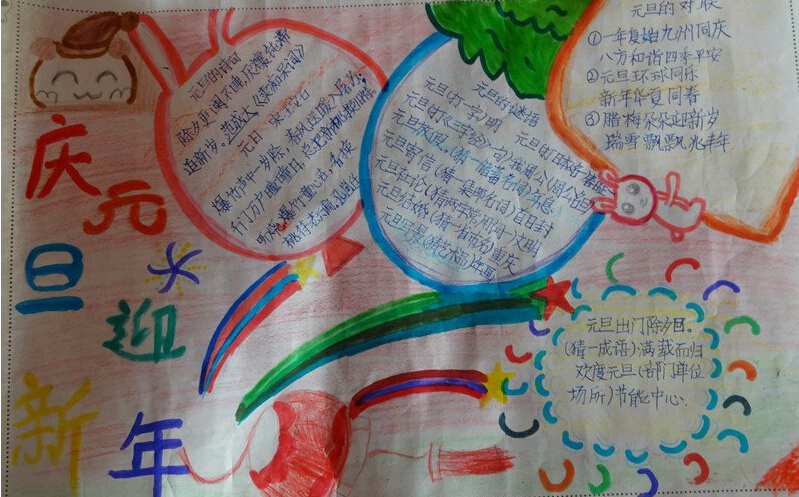 庆元
旦
迎
新
年
元旦的诗句
元旦 宋 王安石
爆竹声中一岁除,春风送暖入屠苏。
千门万户曈曈日,总把新桃换旧符。
元旦的谜语
元旦(打一字)明
元旦放假。(猜一
元旦寄信(猜一集邮名词)首日封
元旦社论(猜两字常用词一)文明
元旦结婚(猜一省市名)重庆
元旦写景(猜艺术品)年画
元旦的对联
①一年复始九州同庆
八方和谐四季平安
②元旦环球同乐
新年华夏同春
③腊梅朵朵迎新岁
瑞雪飘飘兆丰年.
元旦出门除夕回。
(猜一成语)满载而归
欢度元旦(部门单位
场所)节能中心.